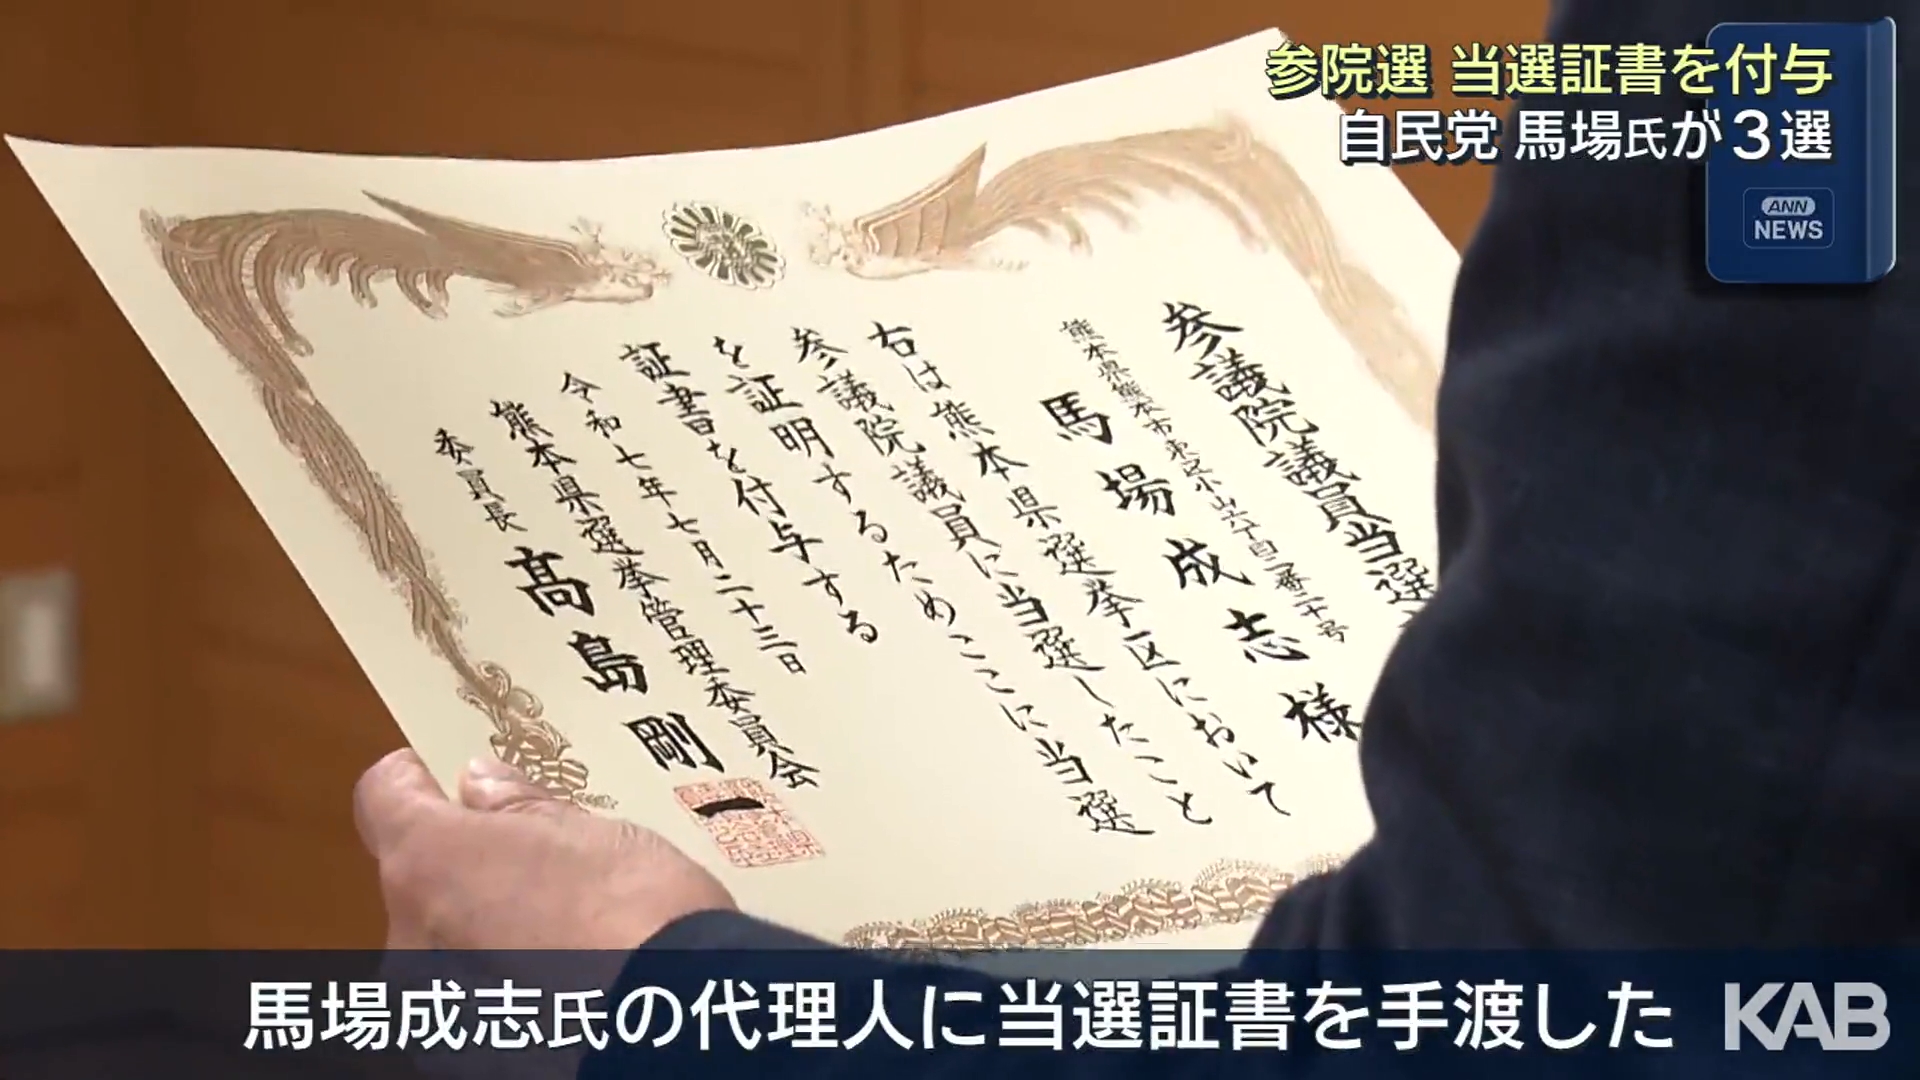 参院選 当選証書を付与
自民党 馬場氏が3選
ANN
NEWS
参議院議員当選
熊本県熊本市東区小山六丁目二番二十号
馬場成志様
右は熊本県選挙区において
参議院議員に当選したこと
を証明するためここに当選
証書を付与する
令和七年七月二十三日
熊本県選挙管理委員会
委員長 髙島剛一
馬場成志氏の代理人に当選証書を手渡した
KAB